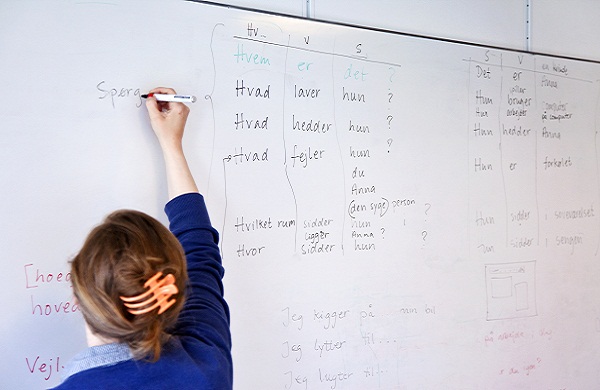 Hv... V S
Hvem er det ?
Spørg
Hvad laver hun ?
Hvad hedder hun ?
Hvad fejler hun ?
du
Anna
den syge person
Hvilket rum sidder hun ?
ligger Anna ?
Hvor sidder hun ?
S V
Det er Anna
Hun bruger
Hun arbejder på computer
Hun hedder Anna
Hun er forkølet
Hun sidder i soveværelset
Hun sidder i sengen
[hoed
hoved
Vejl.
Jeg kigger på min bil
Jeg lytter til...
Jeg lugter til...